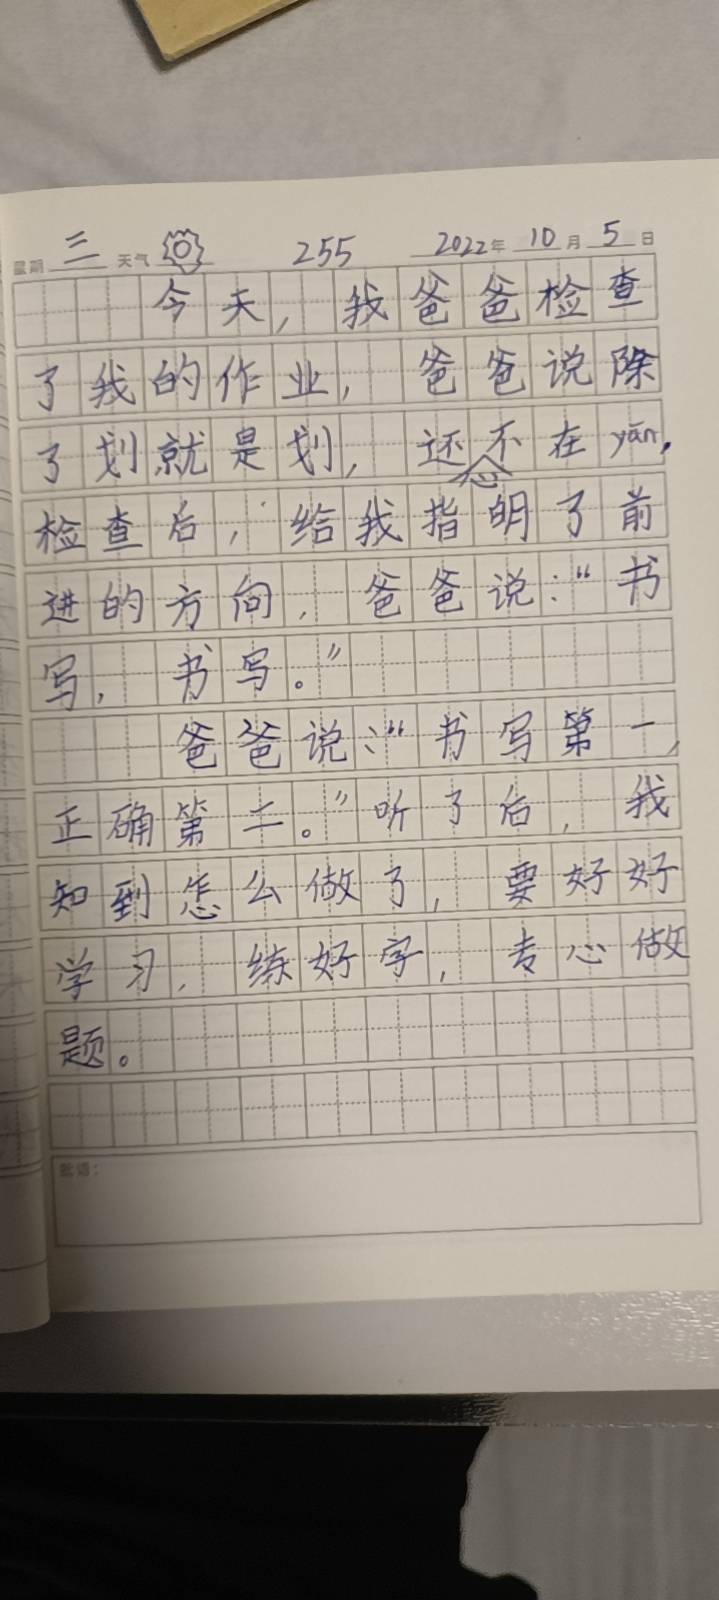 星期 三 天气 255 2022年 10月 5日
今天，我爸爸检查
了我的作业，爸爸说除
了划就是划，还不在yān，
心
检查后，给我指明了前
进的方向，爸爸说：“书
写，书写。”
爸爸说：“书写第一，
正确第二。”听了后，我
知到怎么做了，要好好
学习，练好字，专心做
题。
批语：